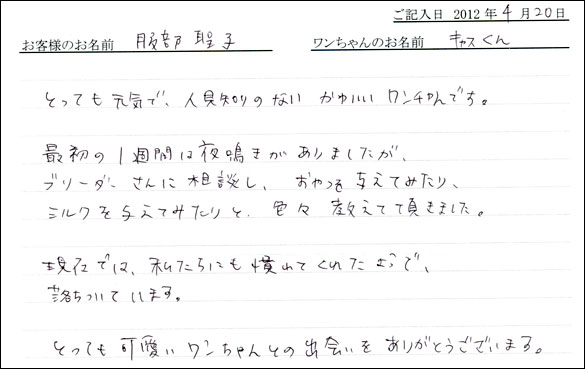 ご記入日 2012年4月20日
お客様のお名前 服部 聖子 ワンちゃんのお名前 キャスくん
とっても元気で、人見知りのない かわいい ワンチャんです。
最初の1週間は夜鳴きがありましたが、
ブリーダーさんに相談し、おやつを与えてみたり、
ミルクを与えてみたりと、色々 教えて頂きました。
現在では、私たちにも慣れてくれたようで、
落ちついています。
とっても可愛いワンちゃんとの出会いをありがとうございます。